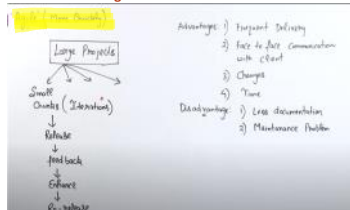 Agile (Move Quickly)
Large Projects
Small
Chunks (Iterations)
Release
feedback
Enhance
Re-release
Advantages: 1) Frequent Delivery
2) Face to face Communication
with client
3) Changes
4) Time
Disadvantage: 1) Less documentation
2) Maintenance Problem